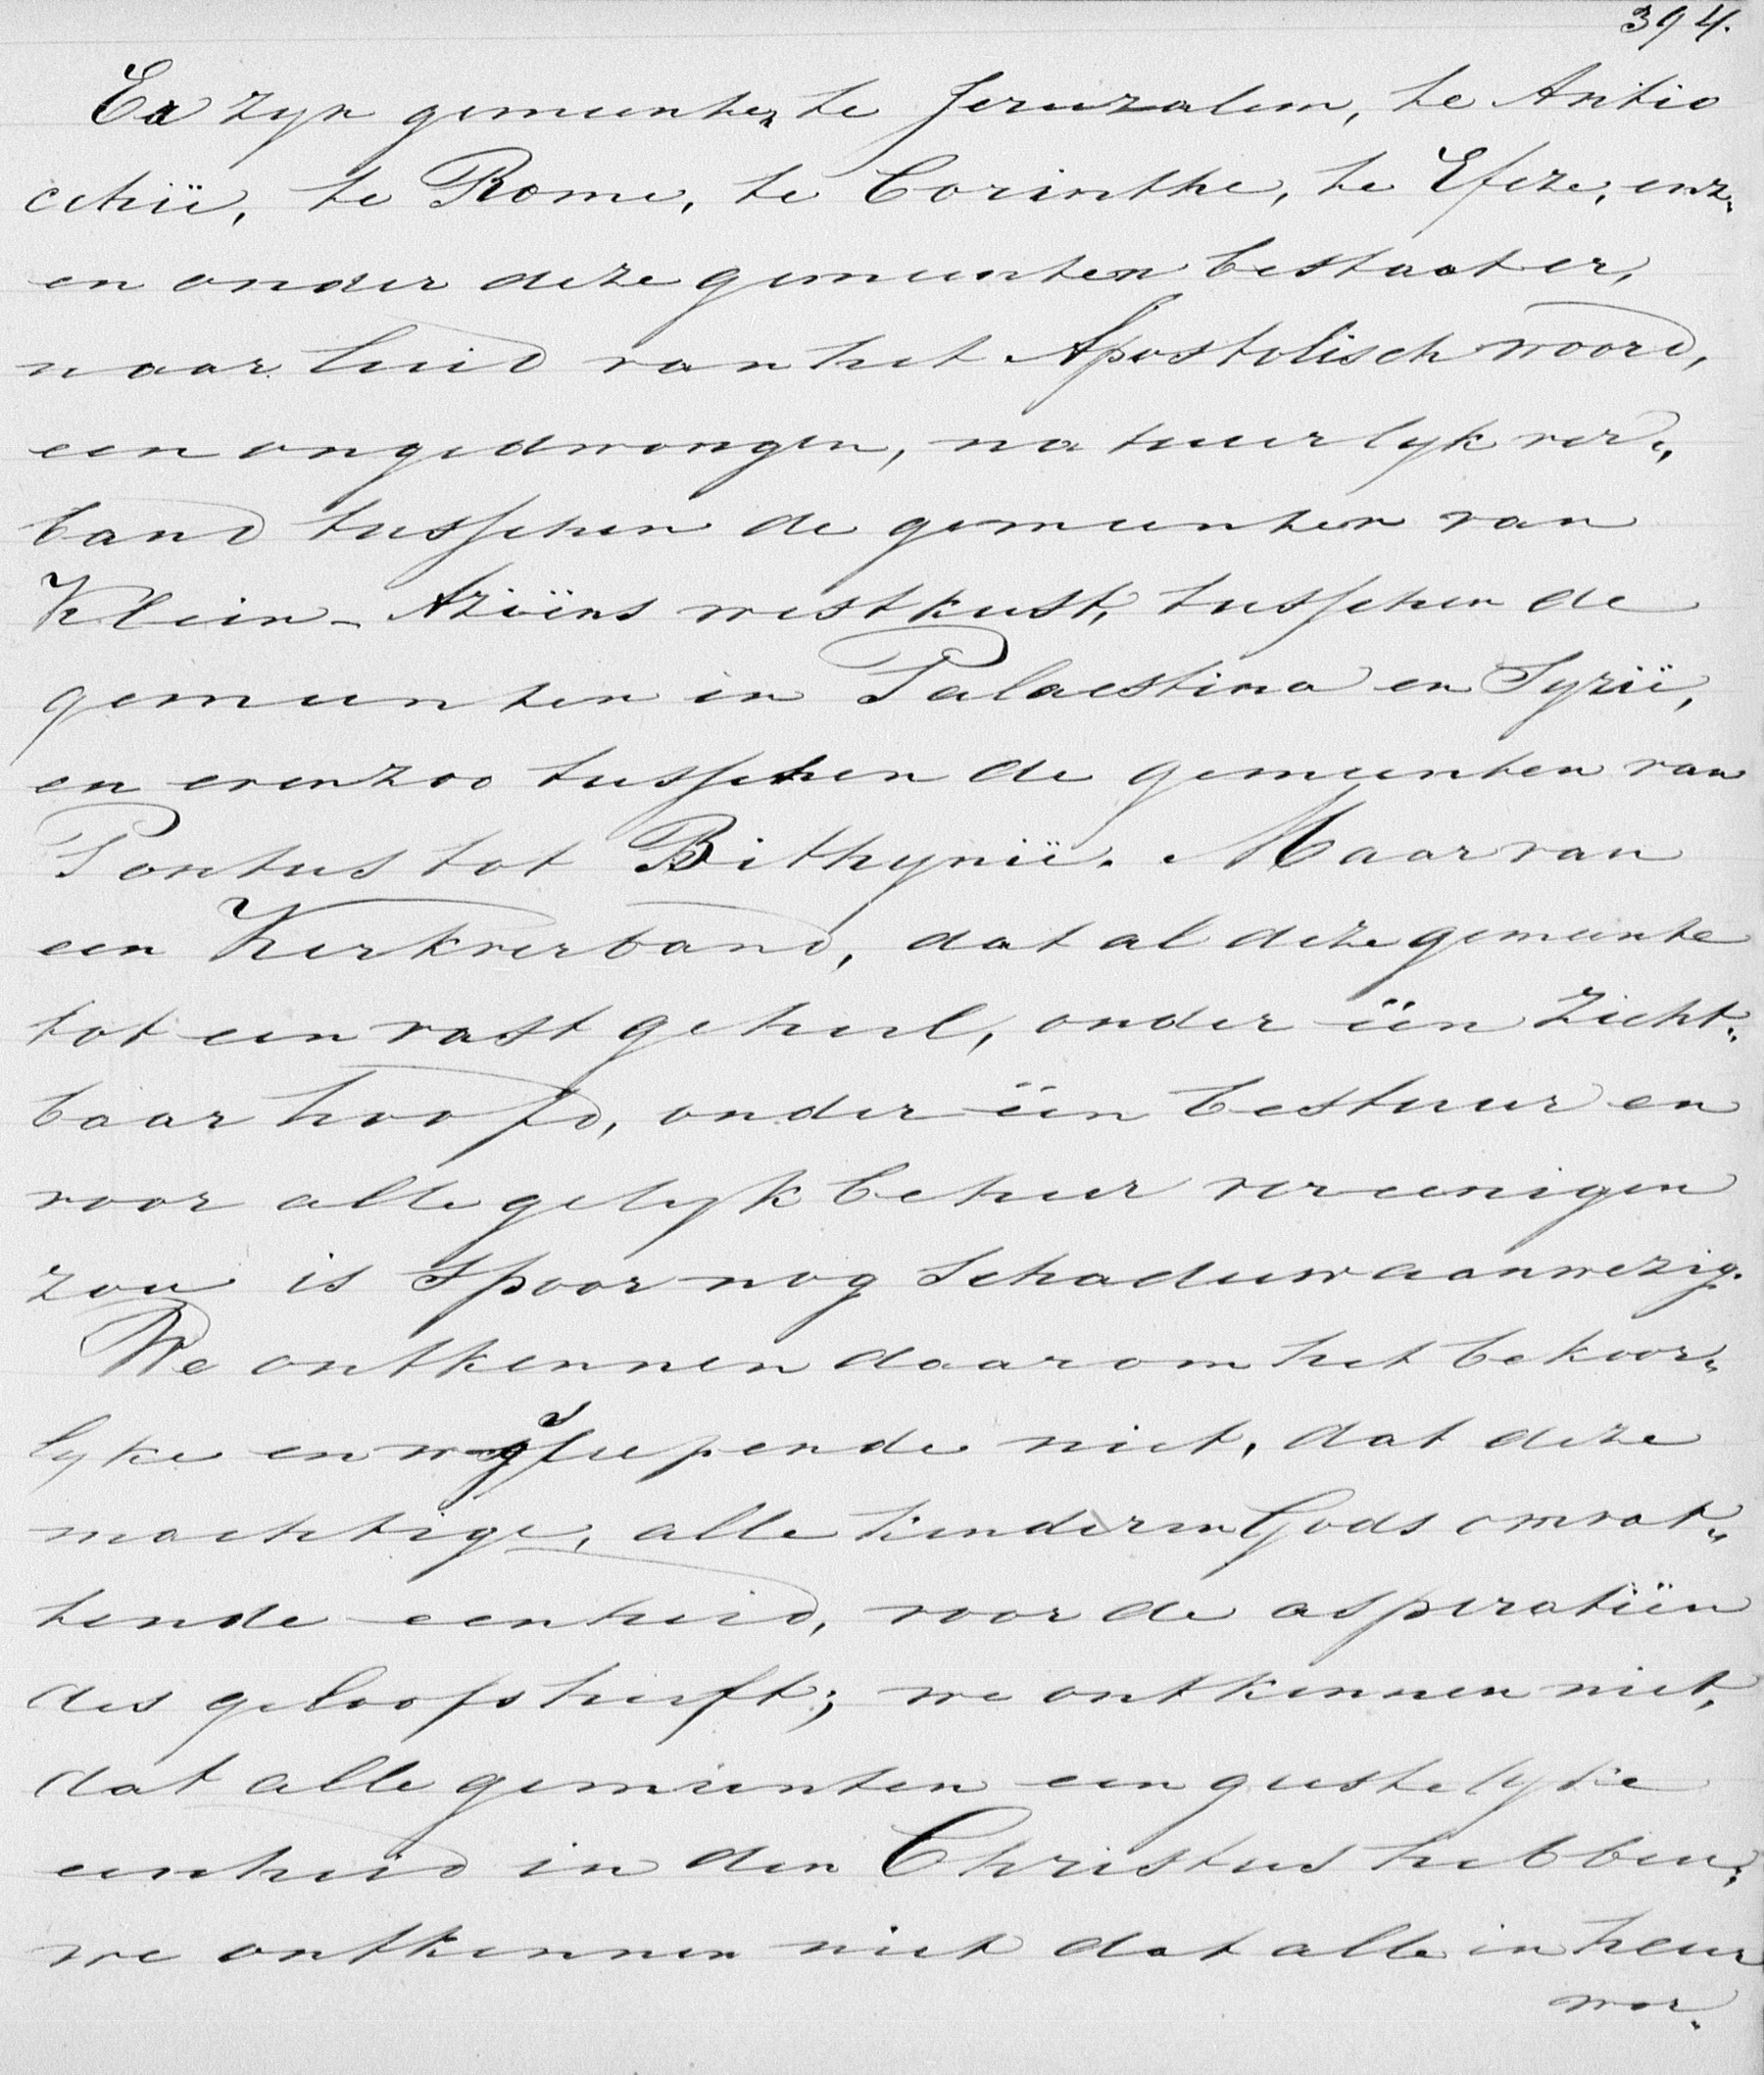 394.
Er zyn gemeenten te Jeruzalem, te Antio
cchië, te Rome, te Corinthe, te Efeze, enz.
en onder deze gemeenten bestaat er,
naar luid van het Apostolisch woord,
een ongedwongen, natuurlyk ver„
band tusschen de gemeenten van
Klein-Aziëns westkust, tusschen de
gemeenten in Palaestina en Syrië,
en evenzoo tusschen de gemeenten van
Pontus tot Bithynië. Maar van
een Kerkverband, dat al deze gemeente
tot een vast geheel, onder één zicht„
baar hoofd, onder één bestuur en
voor alle gelyk beheer vereenigen
zou is spoor nog schaduw aanwezig.
We ontkennen daarom het bekoor„
lyke en wegsleepende niet, dat deze
machtige, alle kinderen Gods omvat„
tende eenheid, voor de aspiratiën
des geloofs heeft; we ontkennen niet,
dat alle gemeenten een geestelyke
eenheid in den Christus hebben;
we ontkennen niet dat alle in heur
wor.